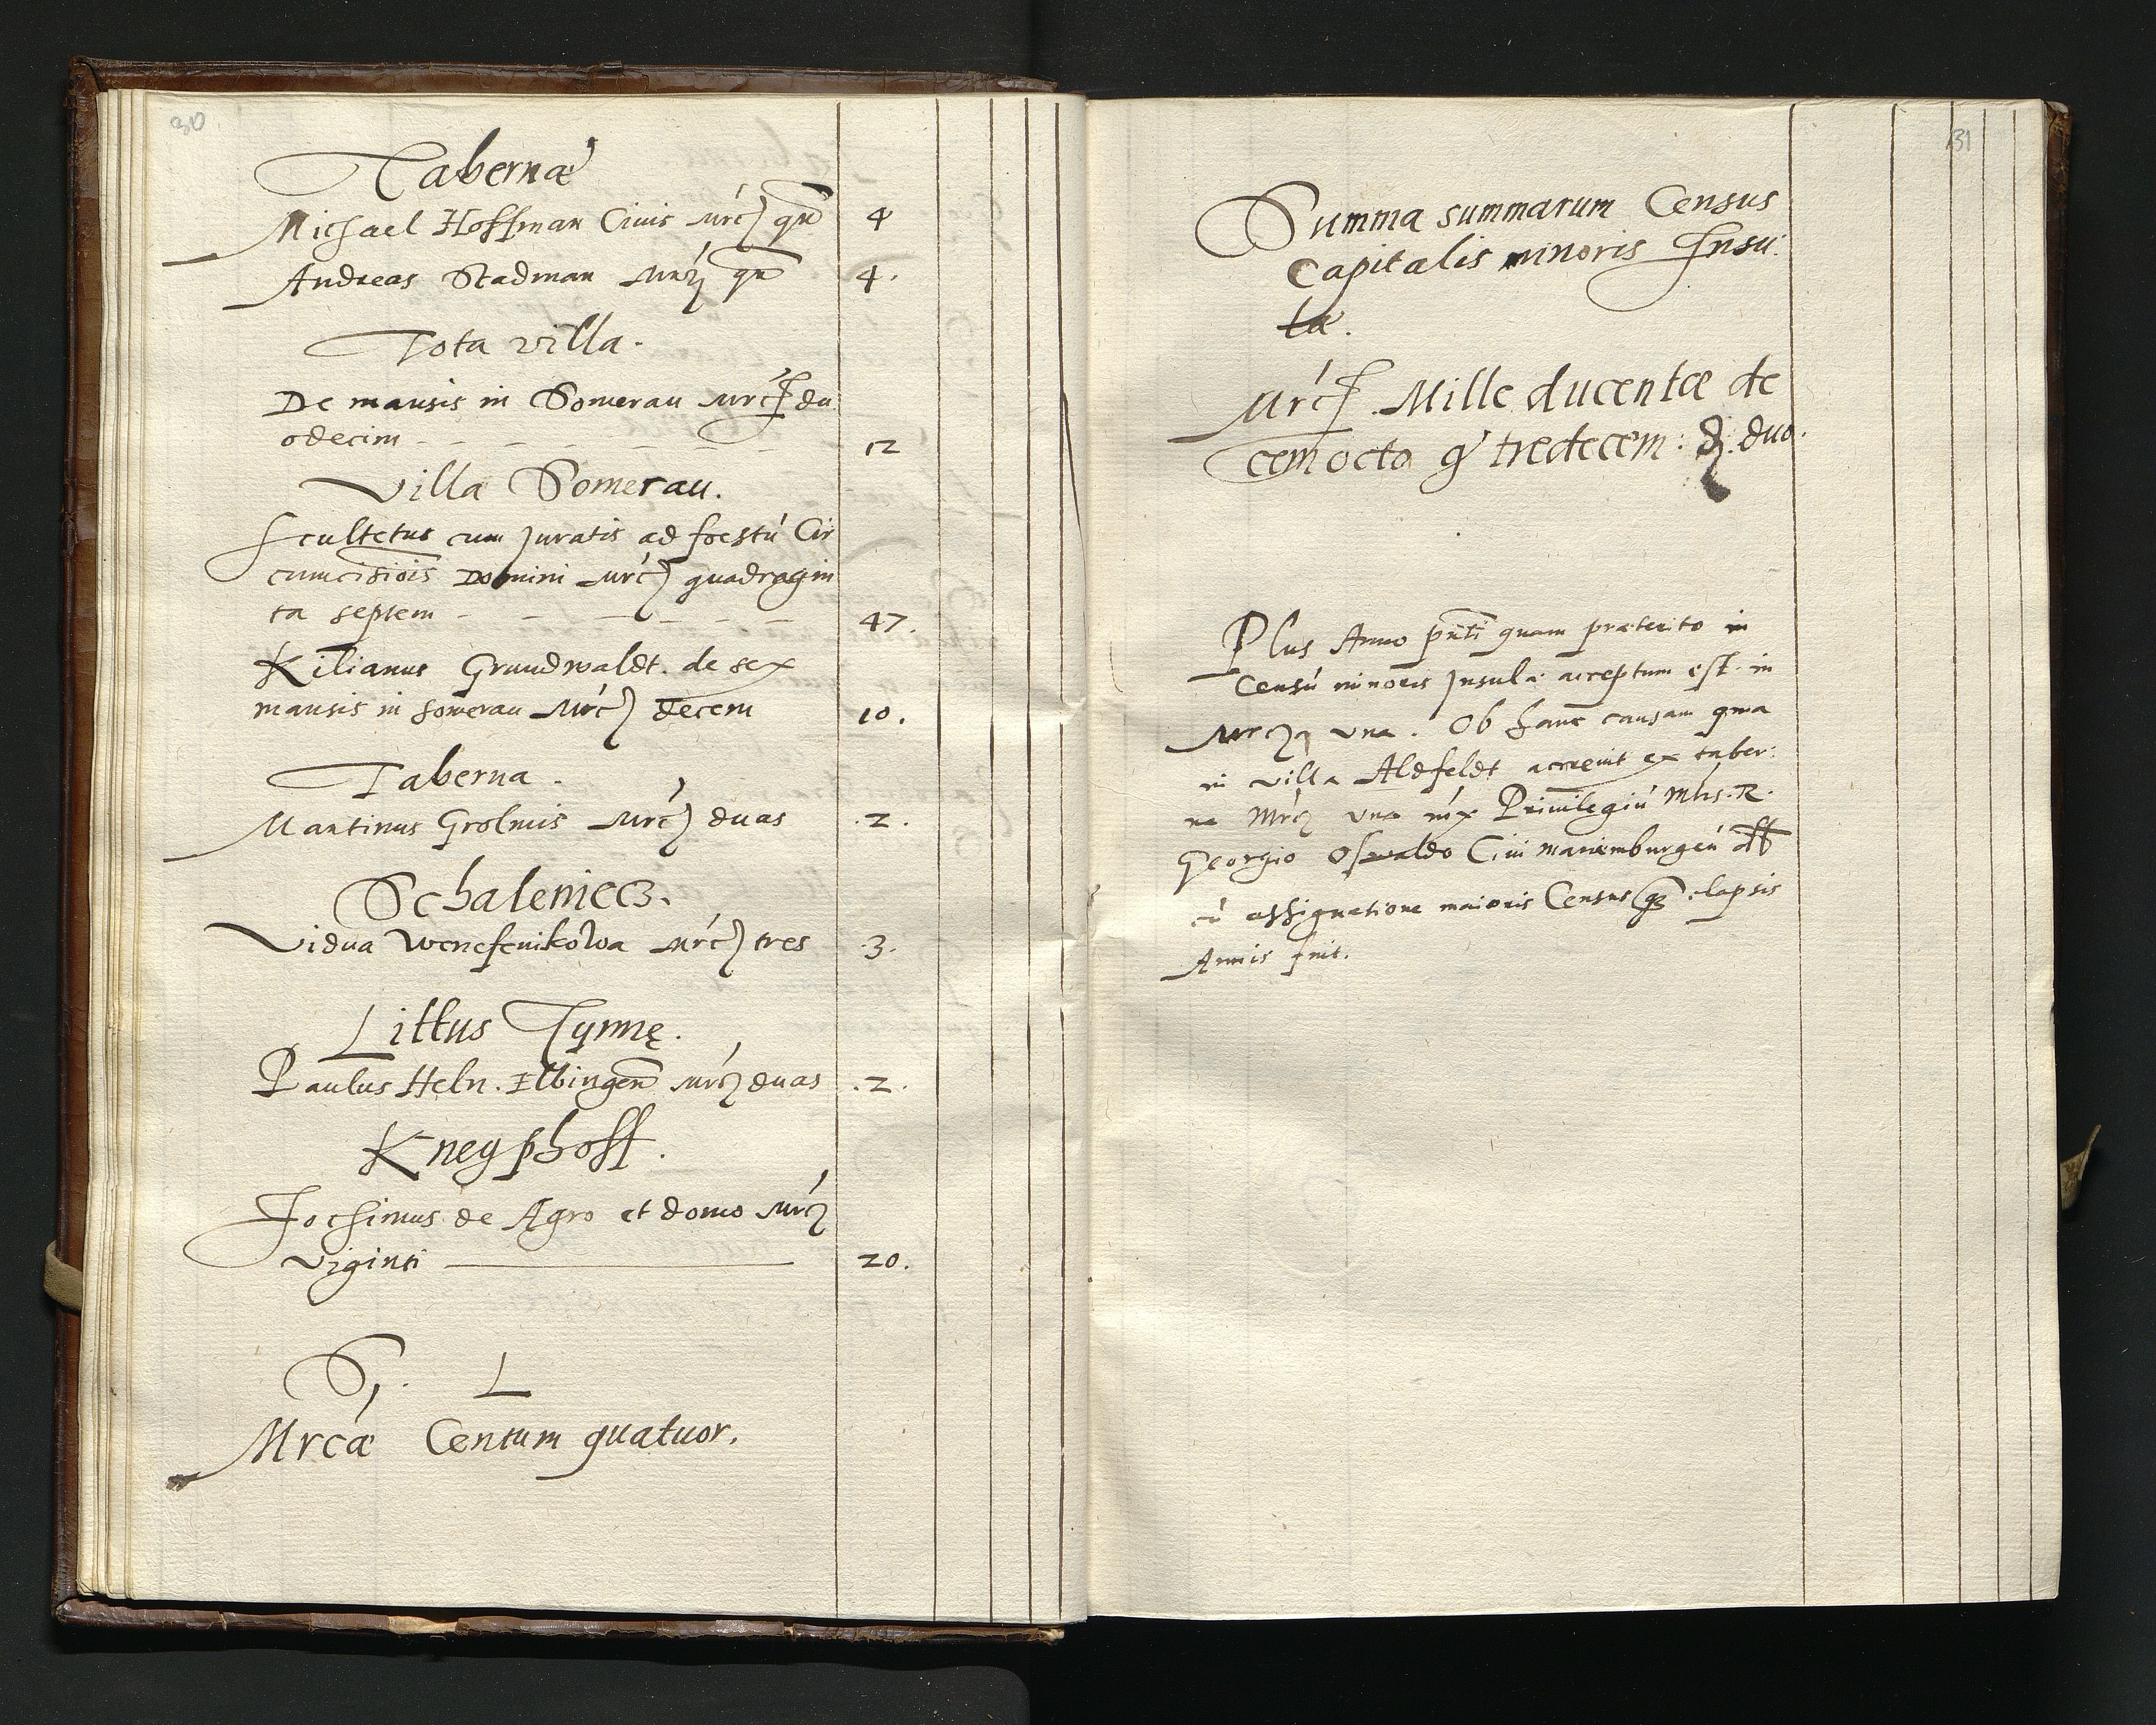 30
Tabernæ
Michael Hoffman Ciuis mrć qu 4
Andreas Stadman mrć qu 4.
Tota villa.
De mansis in Somerau mrć du
odecim - - - - - - - 12
Villa Somerau.
Scultetus cum juratis ad foestú Cir
cumcisiōis Domini mrć quadragin
ta septem - - - - - - 47.
Kilianus Grundwaldt. de sex
mansis in Somerau mrć decem 10.
Taberna.
Martinus Grolmis mrć duas .2.
Schaleniecz.
Vidua Wenefenikowa mrć tres .3.
Littus Tymnę.
Paulus Heln. Elbingen mrć duas .2.
Kneyphoff.
Jochimus de Agro et domo mrć
viginti 20.
S. L
Mrcæ Centum quatuor.
31
Summa summarum Census
Capitalis minoris Insu:
læ.
mrć. Mille ducentæ de
cem octo g tredecem: ₰. duo.
Plus Anno pn̄ti quam præterito in
Censú minoris Insulæ acceptum est in
mrc una. Ob hanc causam quia
in villa Aldfeldt accreuit ex taber:
na Mrć una iux Priuilegiú Mtis. R.
Georgio Oswaldo Ciui mariæmburgeń
cú assignatione maioris Census elapsis
Annis fuit.